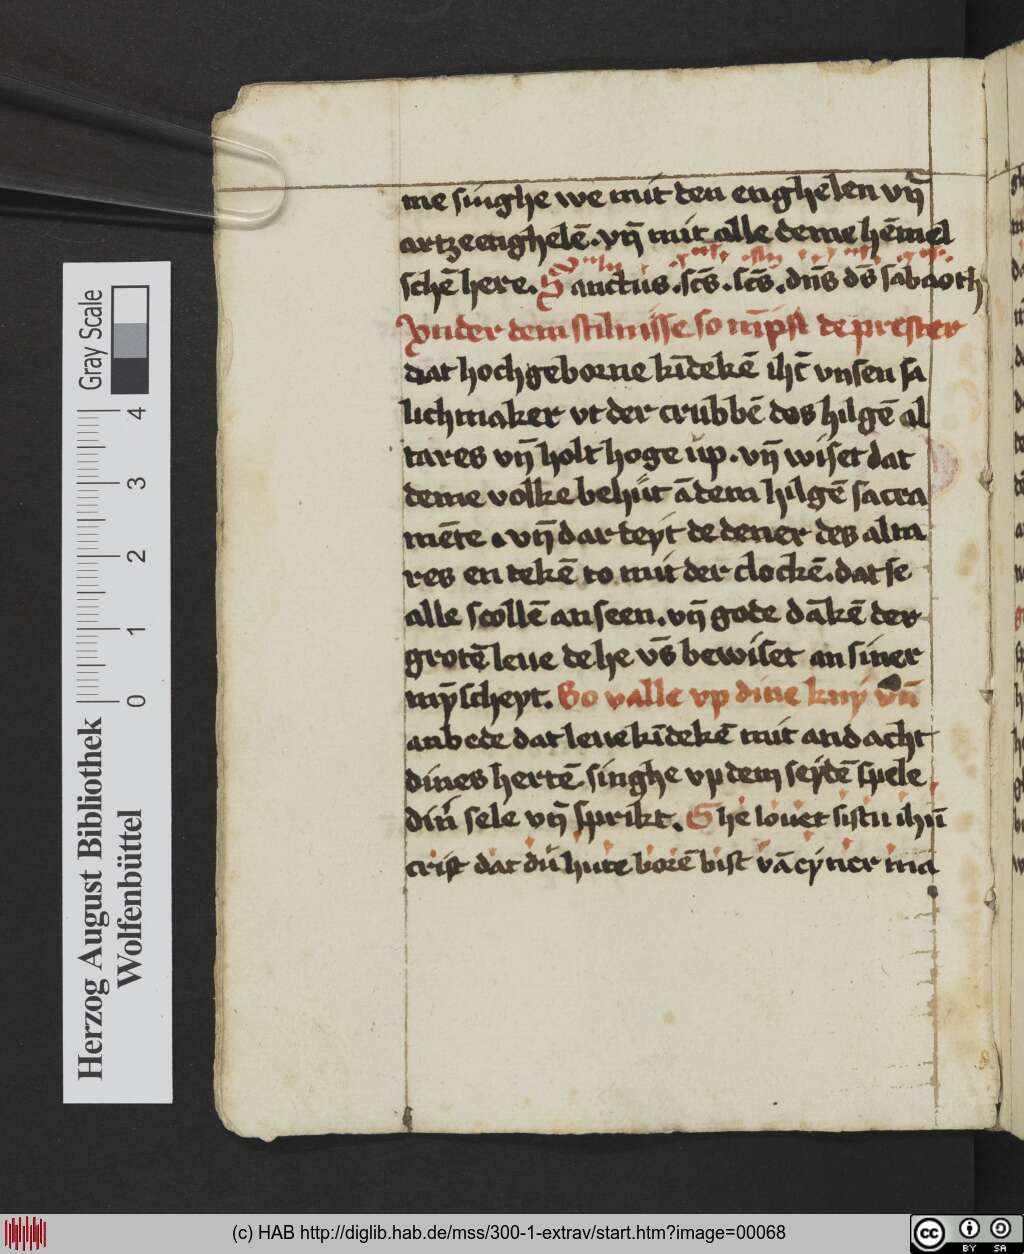 me singhe we mit den enghelen vn̄
artzeenghelē. vn̄ mit alle deme hēmel
schē here. Sanctus. scs̄. scs̄. dn̄s ds̄ sabaoth
Vnder dem stilnisse so nīpst de prester
dat hochgeborne kīdekē ihc̄ vnsen sa
lichmaker vt der crubbē des hilgē al
tares vn̄ holt hoge up. vn̄ wiset dat
deme volke behut ā dem hilgē sacra
mēte. vn̄ dar teyt de dener des alta
res en tekē to mit der clockē. dat se
alle scollē anseen. vn̄ gode dākē der
grotē leue de he vs̄ bewiset an siner
mȳscheyt. So valle vp dine kny vn̄
anbede dat leue kīdekē mit andacht
dines hertē. singhe vp dem seydē spele
din̄ sele vn̄ sprikt. Ghe louet sistu ihū
crist dat du hute borē bist vā eyner ma
Gray Scale
4
3
2
1
0
Herzog August Bibliothek
Wolfenbüttel
(c) HAB http://diglib.hab.de/mss/300-1-extrav/start.htm?image=00068
cc BY SA